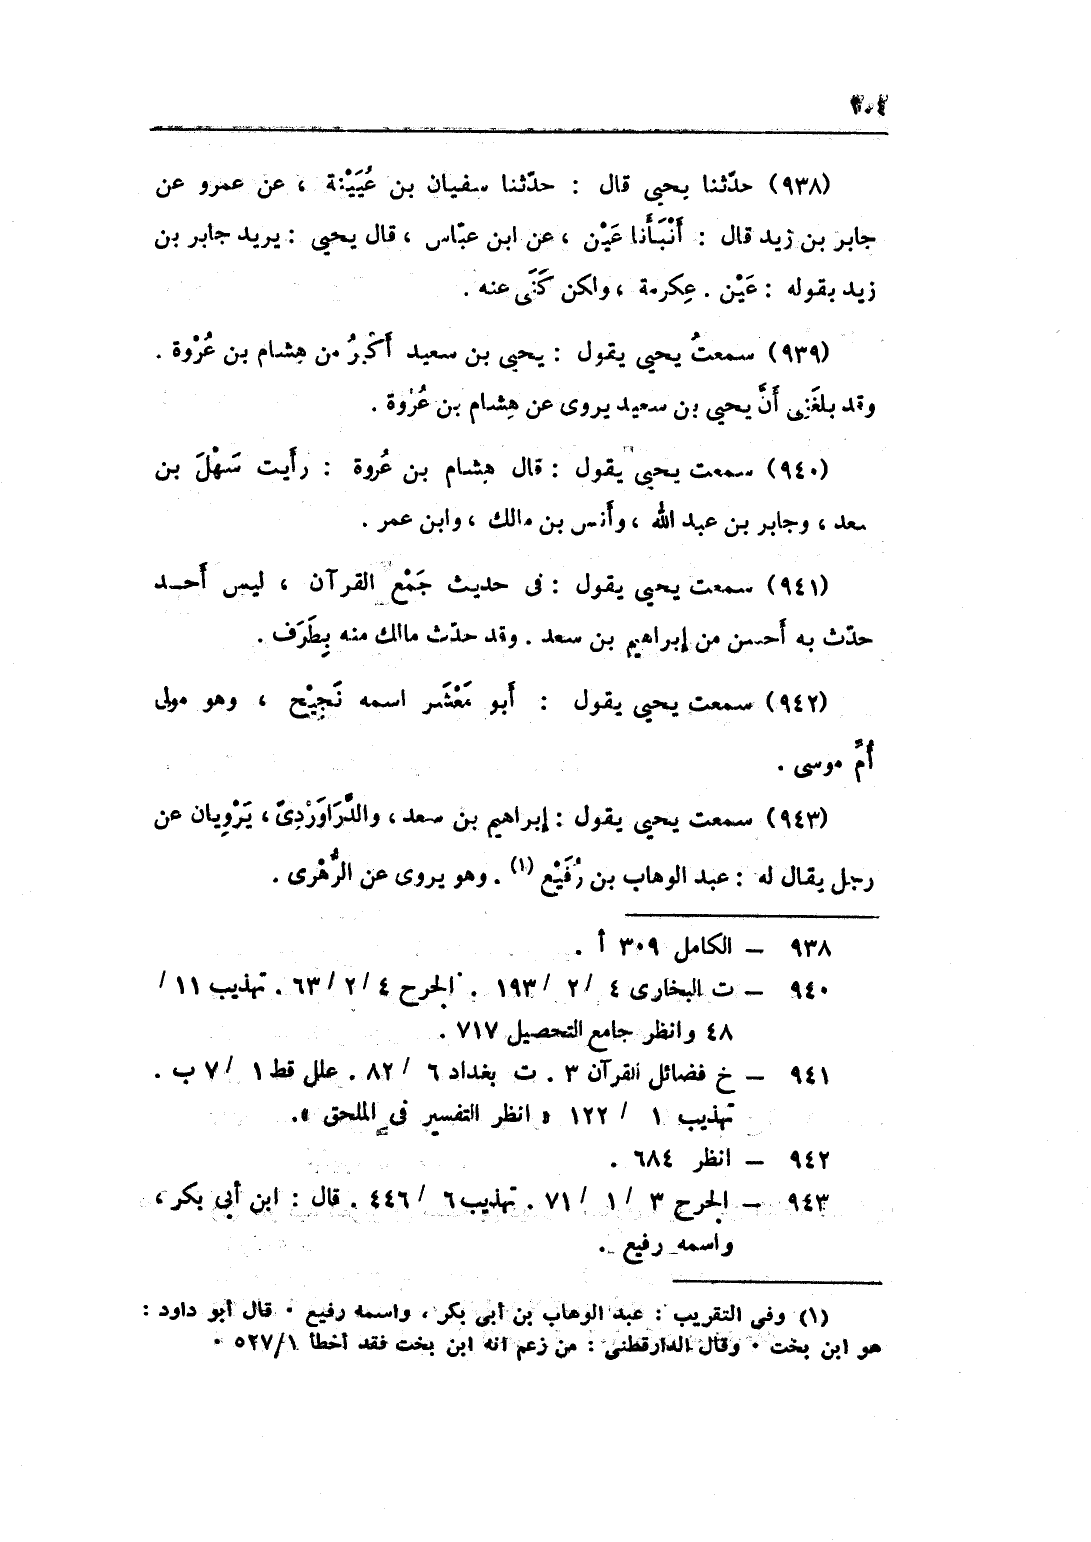 ٢٠٤
(٩٣٨) حدّثنا يحيى قال : حدّثنا سفيان بن عُيَيْنة ، عن عمرو عن
جابر بن زيد قال : أَنْبَأَنا عَيْن ، عن ابن عبّاس ، قال يحيى : يريد جابر بن
زيد بقوله : عَيْن . عِكرمة ، ولكن كَنَى عنه .
(٩٣٩) سمعتُ يحيى يقول : يحيى بن سعيد أَكْبَرُ من هِشام بن عُرْوة .
وقد بلغَنِى أَنَّ يحيى بن سعيد يروى عن هِشام بن عُرْوة .
(٩٤٠) سمعت يحيى يقول : قال هِشام بن عُروة : رأَيت سَهْلَ بن
سعد ، وجابر بن عبد الله ، وأَنس بن مالك ، وابن عمر .
(٩٤١) سمعت يحيى يقول : فى حديث جَمْع القرآن ، ليس أَحـد
حدّث به أَحسن من إبراهيم بن سعد . وقد حدّث مالك منه بِطَرَف .
(٩٤٢) سمعت يحيى يقول : أَبو مَعْشَر اسمه نَجِيْح ، وهو مولى
أُمِّ موسى .
(٩٤٣) سمعت يحيى يقول : إبراهيم بن سعد ، والدَّرَاوَرْدِىّ ، يَرْوِيان عن
رجل يقال له : عبد الوهاب بن رُفَيْع (١) . وهو يروى عن الزُّهْرى .
٩٣٨ – الكامل ٣٠٩ أ .
٩٤٠ – ت البخارى ٤ / ٢ / ١٩٣ . الجرح ٤ / ٢ / ٦٣ . تهذيب ١١ /
٤٨ وانظر جامع التحصيل ٧١٧ .
٩٤١ – خ فضائل القرآن ٣ . ت بغداد ٦ / ٨٢ . علل قط ١ / ٧ ب .
تهذيب ١ / ١٢٢ « انظر التفسير فى الملحق ».
٩٤٢ – انظر ٦٨٤ .
٩٤٣ – الجرح ٣ / ١ / ٧١ . تهذيب ٦ / ٤٤٦ . قال : ابن أبى بكر ،
واسمه رفيع .
(١) وفى التقريب : عبد الوهاب بن أبى بكر ، واسمه رفيع · قال أبو داود :
هو ابن بخت · وقال الدارقطنى : من زعم انه ابن بخت فقد أخطأ ٥٢٧/١ ·